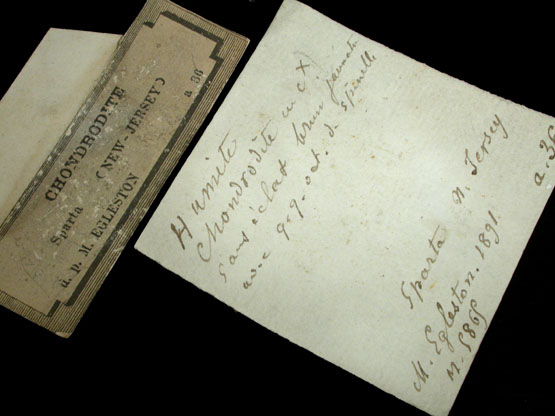 CHONDRODITE
Sparta (NEW-JERSEY)
d. p. M. EGLESTON a. 36
Humite
Chondrodite en cx)
sans éclat brun jaunatre
avec q.q. oct. de spinelle
Sparta N. Jersey
M. Egleston. 1891. a. 36